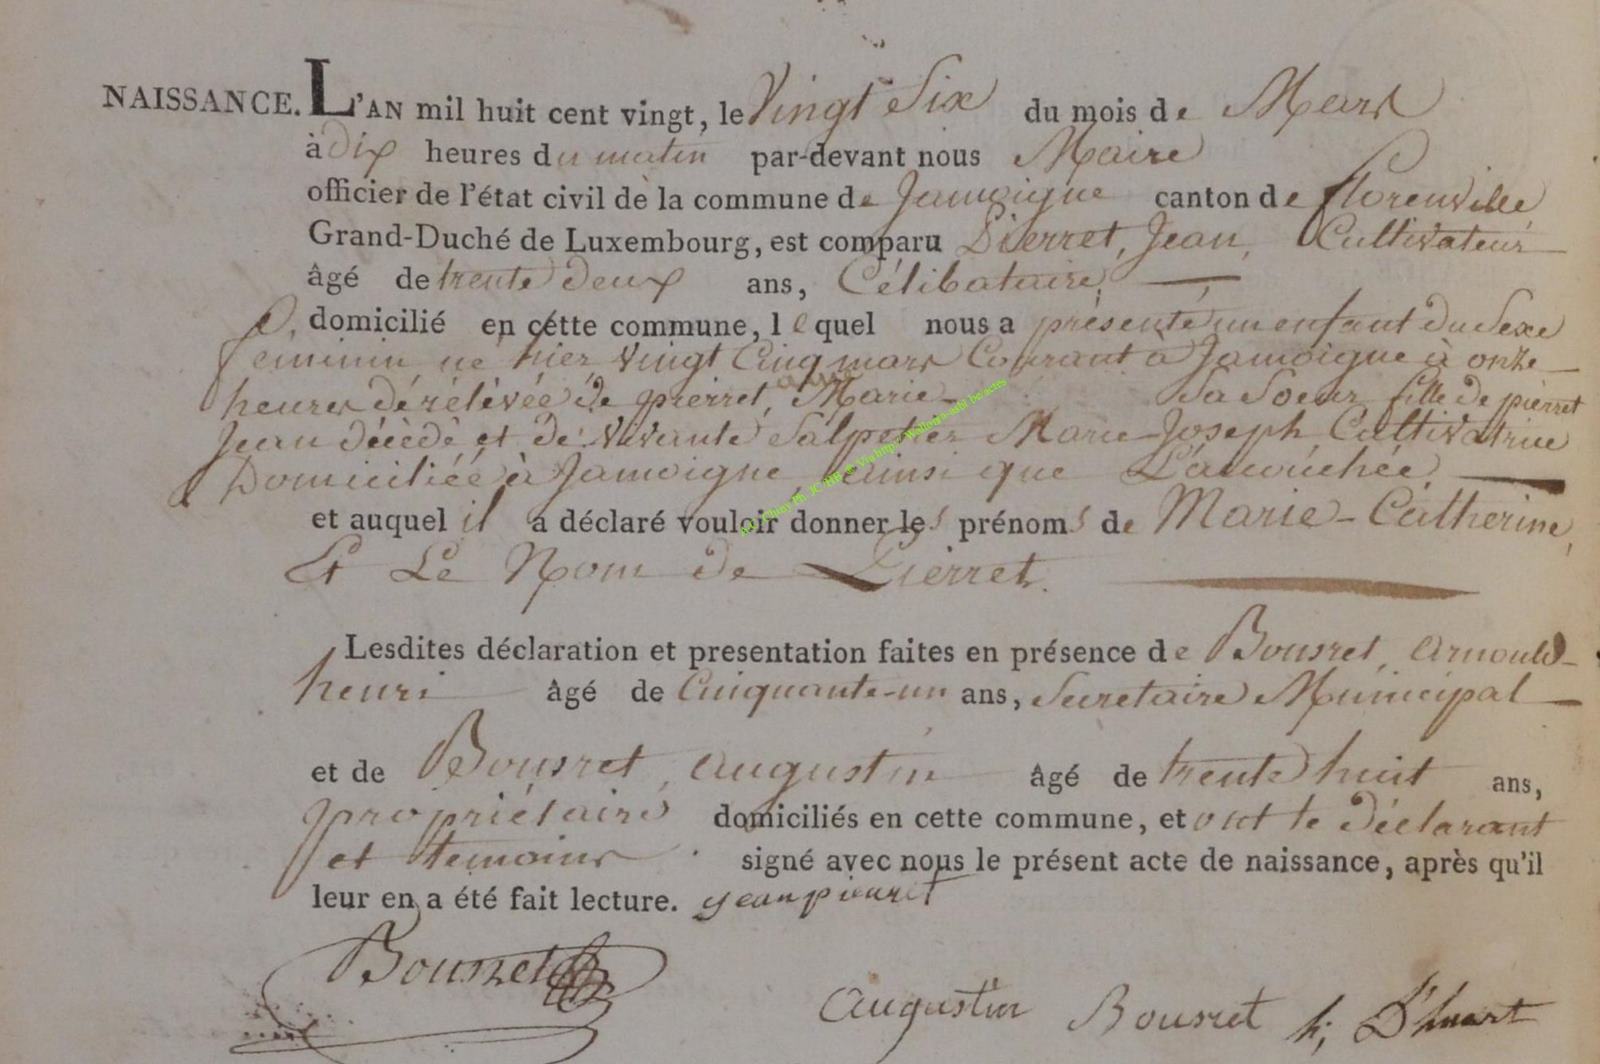 NAISSANCE. L'AN mil huit cent vingt, le Vingt Six du mois de Mars
à dix heures du matin par-devant nous Maire
officier de l'état civil de la commune de Jamoigne canton de florenville
Grand-Duché de Luxembourg, est comparu Pierret, Jean, Cultivateur
âgé de trente deux ans, Célibataire
domicilié en cette commune, lequel nous a présenté un enfant du Sexe
féminin né hier vingt Cinq mars Courant à Jamoigne à onze
heures dérélévéé de pierret, Marie anne Sa Soeur fille de pierret
Jean décèdé et de vivante Salpeter Marie-Joseph Cultivatrice
Domiciliéé à Jamoigne, ainsi que L'acouchéé,
et auquel il a déclaré vouloir donner les prénoms de Marie-Catherine,
Et Le Nom de Pierret.
Lesdites déclaration et presentation faites en présence de Bousret, arnould-
henri âgé de Cinquante-un ans, Secretaire Municipal
et de Bousret, augustin âgé de trente huit ans,
propriétaire domiciliés en cette commune, et ont le déclarant
et temoins signé avec nous le présent acte de naissance, après qu'il
leur en a été fait lecture. jean pierret
Bousret
Augustin Bousret h; D'huart